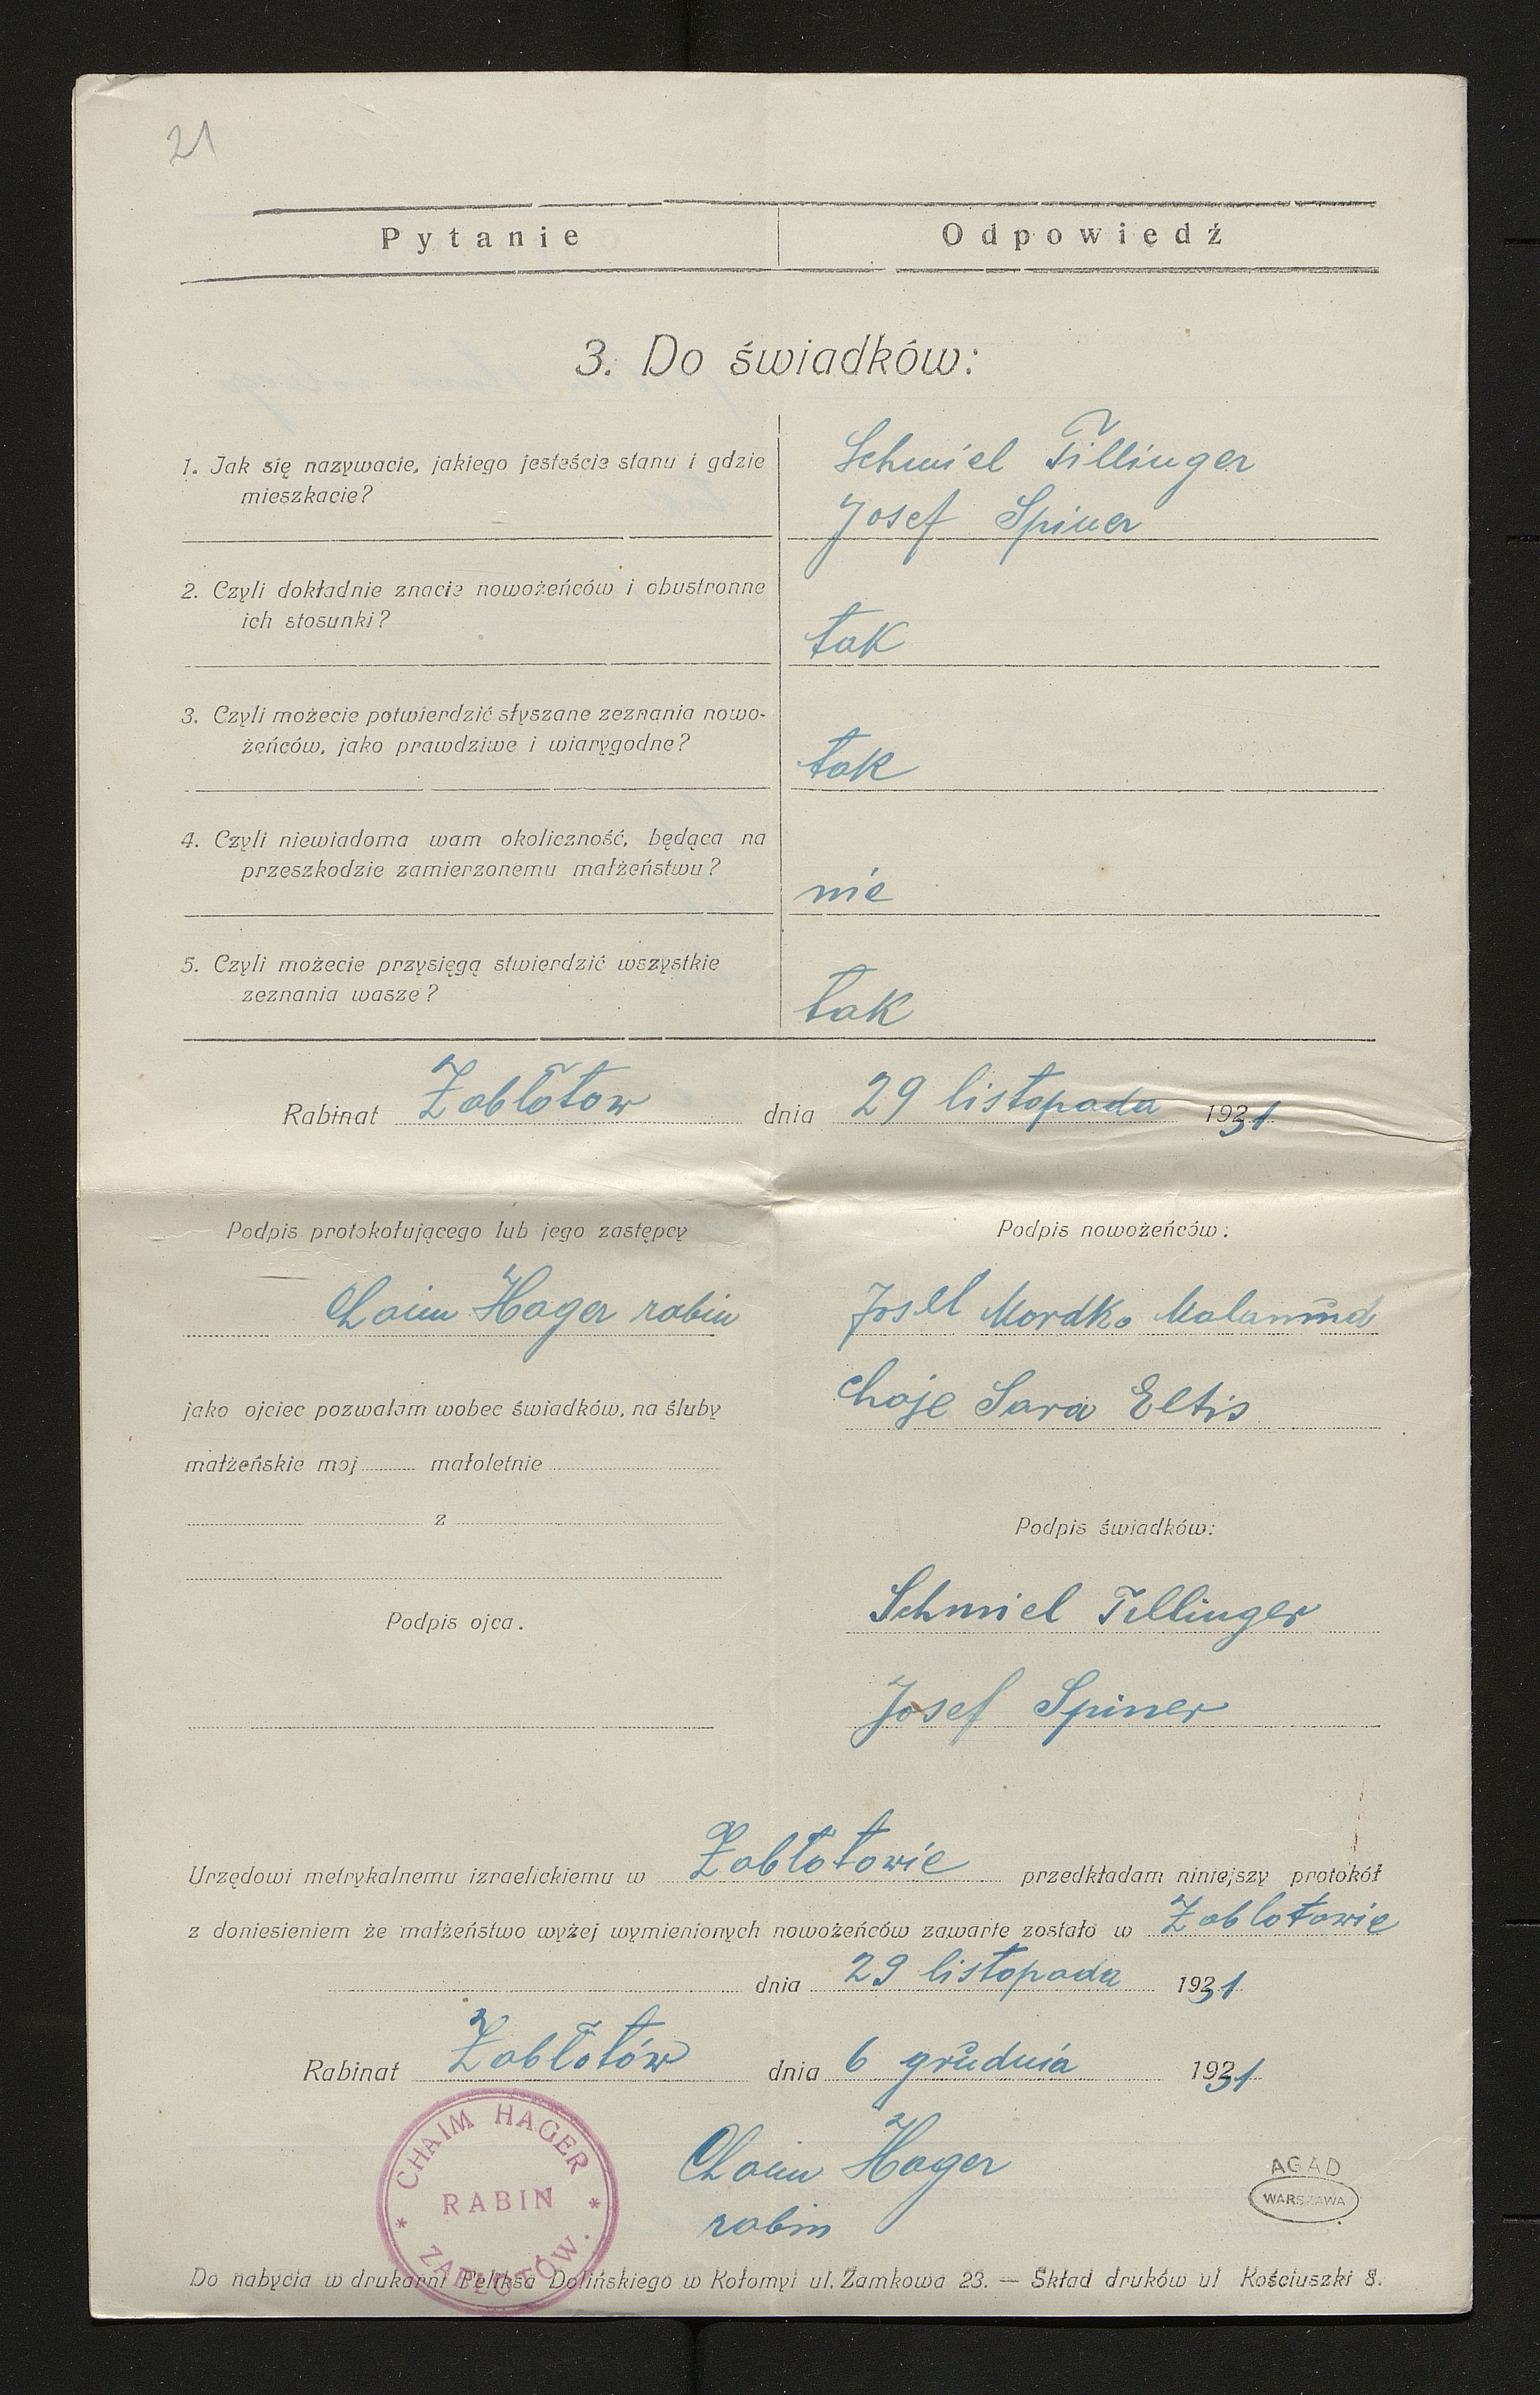 21
Pytanie
Odpowiedź
3. Do świadków:
1. Jak się nazywacie, jakiego jesteście stanu i gdzie
mieszkacie?
Schmiel Tillinger
Josef Spiner
2. Czyli dokładnie znacie nowożeńców i obustronne
ich stosunki?
tak
3. Czyli możecie potwierdzić słyszane zeznania nowo-
żeńców, jako prawdziwe i wiarygodne?
tak
4. Czyli niewiadoma wam okoliczność, będąca na
przeszkodzie zamierzonemu małżeństwu?
nie
5. Czyli możecie przysięgą stwierdzić wszystkie
zeznania wasze?
tak
Rabinat Zabłotow dnia 29 listopada 1931
Podpis protokołującego lub jego zastępcy
Chaim Hager rabin
Podpis nowożeńców:
Josel Mordko Malamud
Chaje Sara Eltis
jako ojciec pozwalam wobec świadków, na śluby
małżeńskie moj małoletnie
z
Podpis ojca.
Podpis świadków:
Schmiel Tillinger
Josef Spiner
Urzędowi metrykalnemu izraelickiemu w Zabłotowie przedkładam niniejszy protokół
z doniesieniem że małżeństwo wyżej wymienionych nowożeńców zawarte zostało w Zablotowie
dnia 29 listopada 1931
Rabinat Zabłotów dnia 6 grudnia 1931
CHAIM HAGER
RABIN
ZABŁOTÓW.
Chaim Hager
rabin
AGAD
WARSZAWA
Do nabycia w drukarni Feliksa Dolińskiego w Kołomyi ul. Zamkowa 23. — Skład druków ul Kościuszki 8.